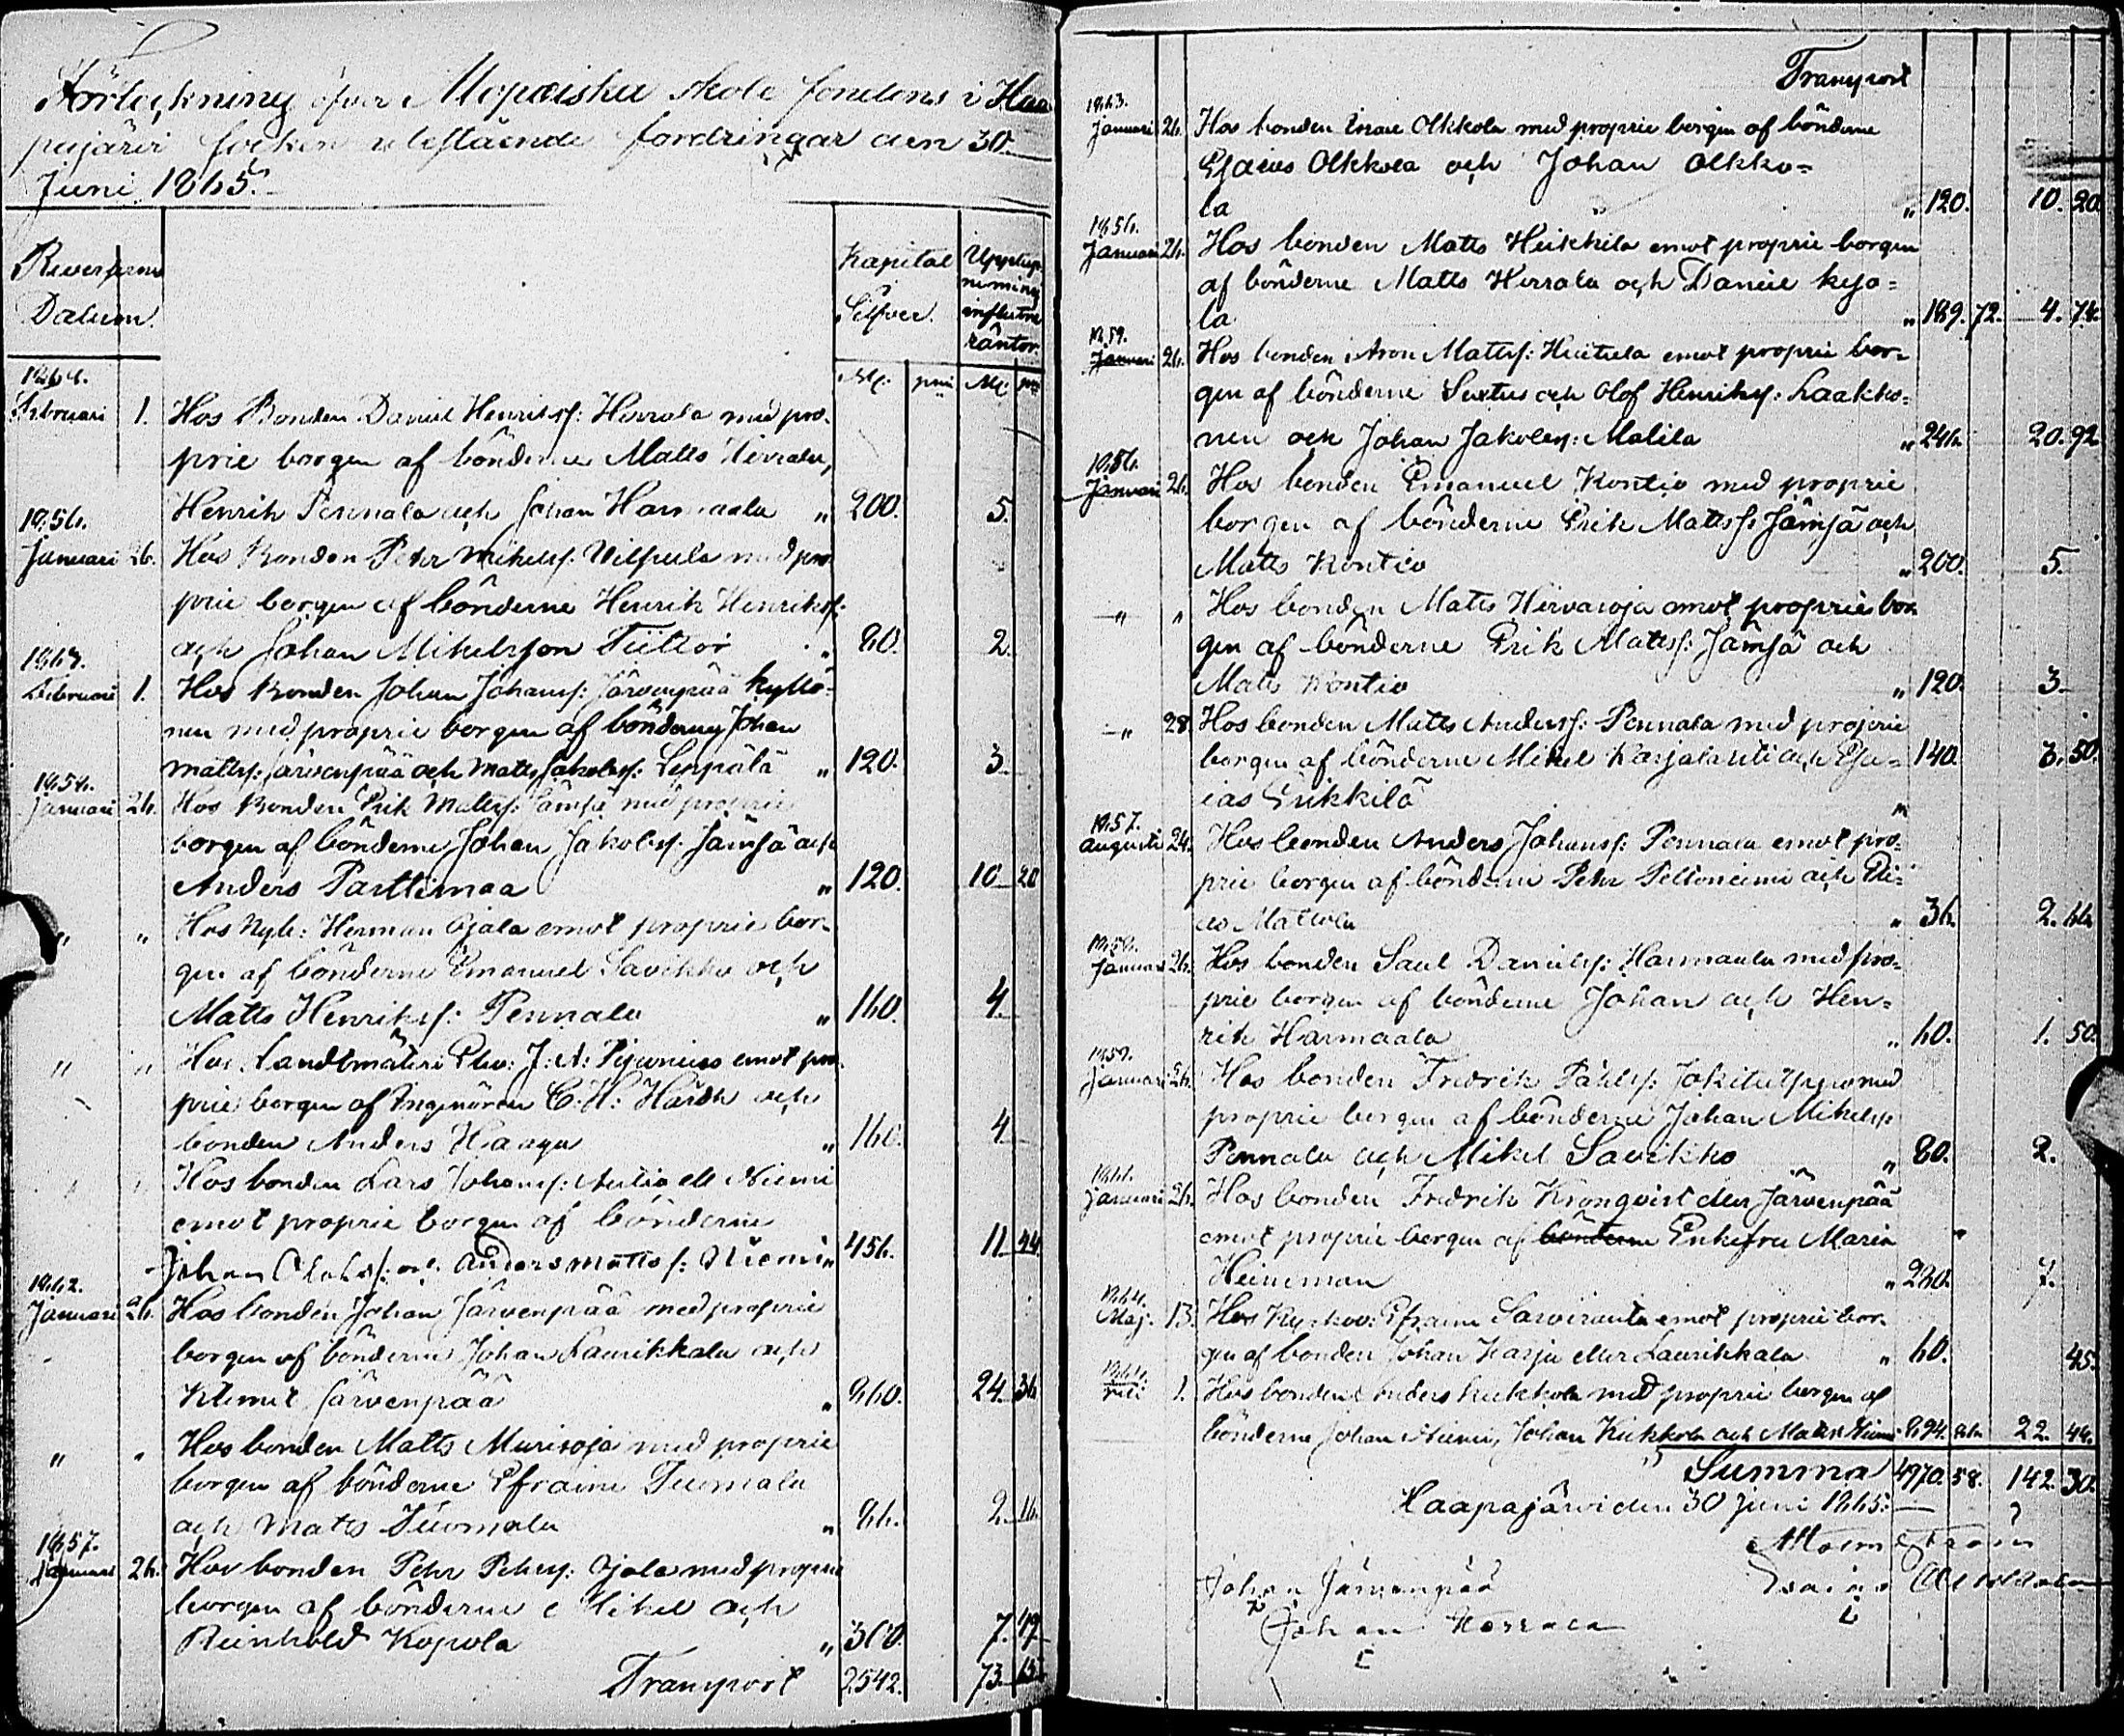 Förteckning öfver Mopaiska skole fondens i Haa
pajärvi socken utestående fordringar den 30
Juni 1865.
Reversernes Datum.
Kapital Silfver.
Upplup. influtne räntor
Mk. pni Mk. pni
1864.
Februari 1. Hos Bonden Daniel Henriksf: Herrala med pro-
prie borgen af bönderne Matts Herrala,
Henrik Pennala och Johan Harmaala " 200. 5.
1856.
Januari 26. Hos Bonden Petr Mikelsf: med pro
prie borgen af bönderne Henrik Henriksf:
och Johan Mikelsson " 80. 2.
Februari 1. Hos Bonden Johan Johansf: Järvenpää Kyllö=
nen med proprie borgen af bönderne Johan
Mattsf: Järvenpää och Matts Jakobsf: Leppälä " 120. 3.
Januari 26. Hos Bonden Erik Mattsf: Jämsä med proprie
borgen af bönderne Johan Jakobsf. Jämsä och
Anders Parttimaa " 120. 10 20
" " Hos Nyb: Herman Ojala emot proprie bor-
gen af bönderne Emanuel Savikko och
Matts Henriksf: Pennala " 160. 4.
" " Hos Landtmäteri Elev: J: A: emot pro
prie borgen af Ingeniören C. H: Hårdh och
bonden Anders Haaga " 160. 4
" " Hos bonden Lars Johansf: Autio ell Niemi
emot proprie borgen af bönderne
Johan och Anders Mattsf: Niemi " 456. 11 44
1862.
Januari 26. Hos bonden Johan Järvenpää med proprie
borgen af bönderne Johan Laurikkala och
Klemet Järvenpää " 860. 24. 36
" " Hos bonden Matts Murisoja med proprie
borgen af bönderne Efraim Tuomala
och Matts Tuomala " 86. 2. 16
1857.
Januari 26. Hos bonden Petr Petersf: Ojala med proprie
borgen af bönderne Mikel och
Reinhold Kopola " 300. 7. 49
Transport 2542. 73. 15
Transport
1863.
Januari 26. Hos bonden Olkkola med proprie borgen af bönderne
Esaias Olkkola och Johan Olkko=
la " 120. 10. 20
1856.
Januari 26. Hos bonden Matts Heikkila emot proprie borgen
af bönderne Matts Herrala och Daniel
la " 189. 72. 4. 74.
1859.
Januari 26. Hos bonden Aron Mattsf: emot proprie bor-
gen af bönderne och Olof Henriksf: Laakko=
nen och Johan Jakobsf: Malila " 246. 20. 92
1856.
Januari 26. Hos bonden Emanuel Kontio med proprie
borgen af bönderne Erik Mattsf: Jämsä och
Matts Kontio " 200. 5.
" " Hos bonden Matts Hirvasoja emot proprie bor
gen af bönderne Erik Mattsf: Jämsä och
Matts Kontio " 120. 3.
" 28 Hos bonden Matts Andersf: Pennala med proprie
borgen af bönderne Mikel Karjalahti och Esa= 140. 3. 50.
ias Erikkilä "
1857.
Augusti 24. Hos bonden Anders Johansf: Pennala emot pro=
prie borgen af bönderne Petr Peltoniemi och Eli=
as Mattola " 36. 2. 66
Januari 26. Hos bonden Saul Danielsf: Harmaala med pro=
prie borgen af bönderne Johan och Hen=
rik Harmaala " 60. 1. 50.
1859.
Januari 26. Hos bonden Fredrik Påhlsf: med
proprie borgen af bönderne Johan Mikelsf:
Pennala och Mikel Savikko " 80. 2.
Januari 26. Hos bonden Fredrik Kronqvist eller Järvenpää
emot proprie borgen af bönderne Enkefru Maria
Heineman " 280. 7.
1864.
Maj. 13. Hos Kyrkov: Efraim Sarviranta emot proprie bor-
gen af bonden Johan Karja eller Laurikkala " 60. 45.
1. Hos bonden Anders Kukkola med proprie borgen af
bönderne Johan Niemi, Johan Kukkola och Matts Niemi 894. 86. 22. 44.
Summa 4970. 58. 142. 30.
Haapajärvi den 30 Juni 1865.
Johan Järvenpää
Johan Herrala